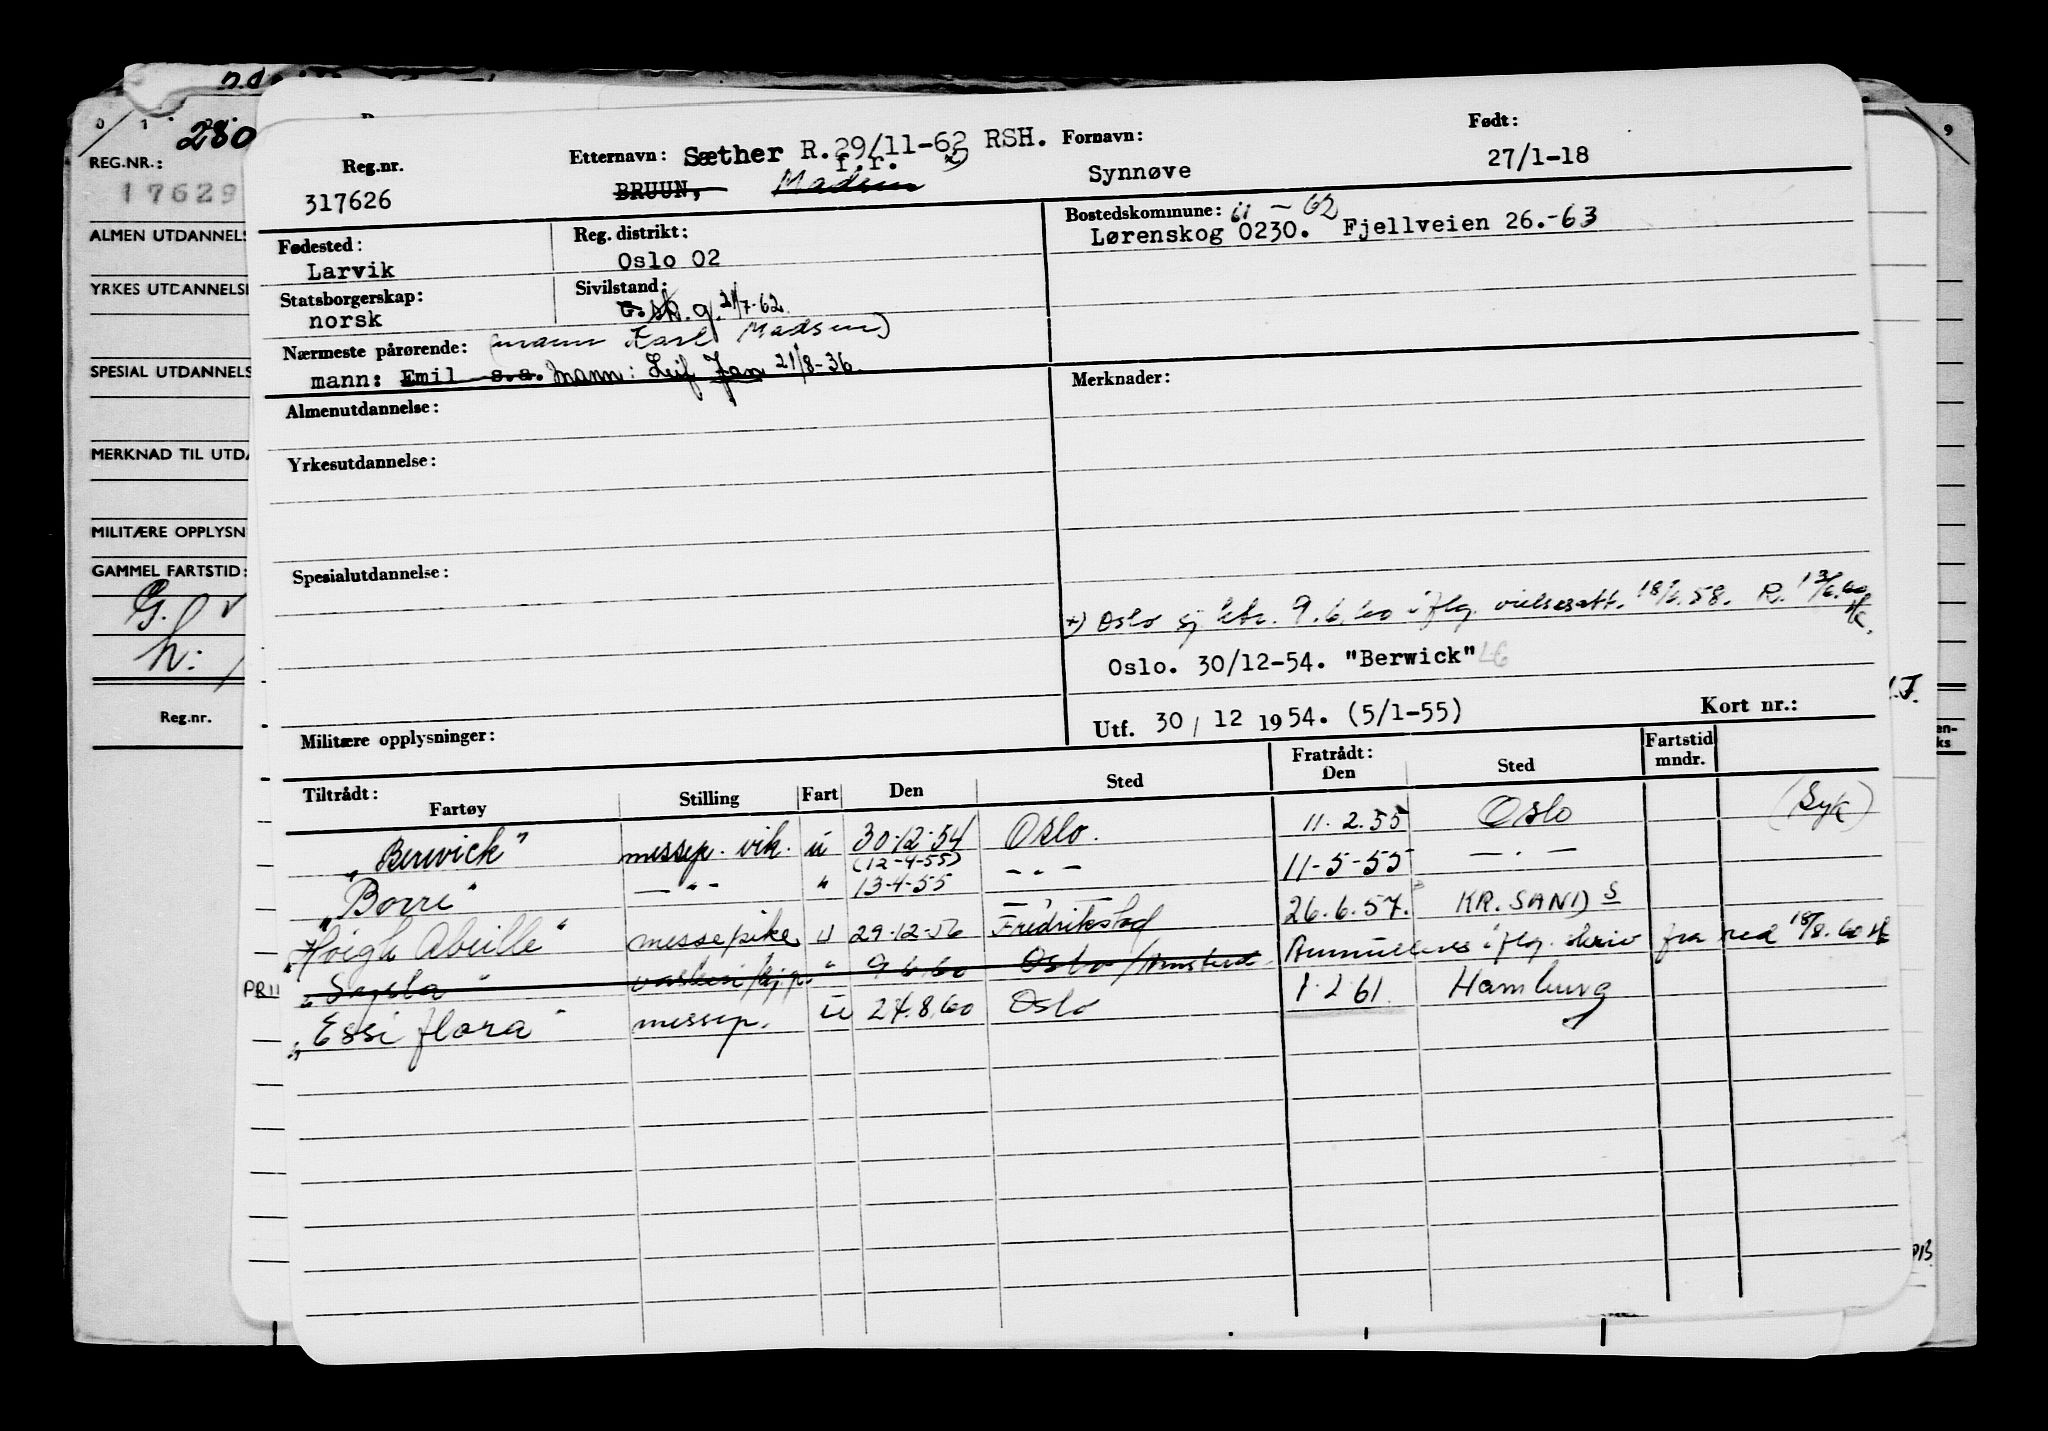 280
REG.NR.:
17629
ALMEN UTDANNELS
YRKES UTDANNELSE
SPESIAL UTDANNELS
MERKNAD TIL UTDA
MILITÆRE OPPLYSN
GAMMEL FARTSTID:
G.
h:
Reg.nr.
Reg.nr. Etternavn: Sæther R.29/11-62 RSH. Fornavn: Født:
317626 BRUUN, f.r. Madsen x) Synnøve 27/1-18
Fødested: Reg. distrikt: Bostedskommune: 11 - 62
Larvik Oslo 02 Lørenskog 0230. Fjellveien 26.-63
Statsborgerskap: Sivilstand:
norsk G. sk. g. 21/7-62.
Nærmeste pårørende: (mann Karl Madsen)
mann: Emil s.a. mann: Leif Jan 21/8-36.
Almenutdannelse: Merknader:
Yrkesutdannelse:
Spesialutdannelse:
x) Oslo sj. ktr. 9.6.60 iflg. vielsesatt. 18/6.58. R. 13/6.60
Oslo. 30/12-54. "Berwick" LG
Utf. 30 / 12 1954. (5/1-55) Kort nr.:
Militære opplysninger:
Tiltrådt: Fratrådt: Fartstid
Fartøy Stilling Fart Den Sted Den Sted mndr.
"Berwick" messep. vik. u 30-12-54 Oslo. 11.2.55 Oslo (Syk)
(12-4-55)
"Borre" — " - " 13-4-55 - " - 11-5-55 — . —
"Høigh Abeille" messepike u 29-12-56 Fredrikstad 26.6.57. KR.SAND S
PR11 " " 9.6.60 Oslo / Annulleres iflg. skriv fra red 18/8.60
"Essi flora" messep. u 24.8.60 Oslo 1.2.61. Hamburg